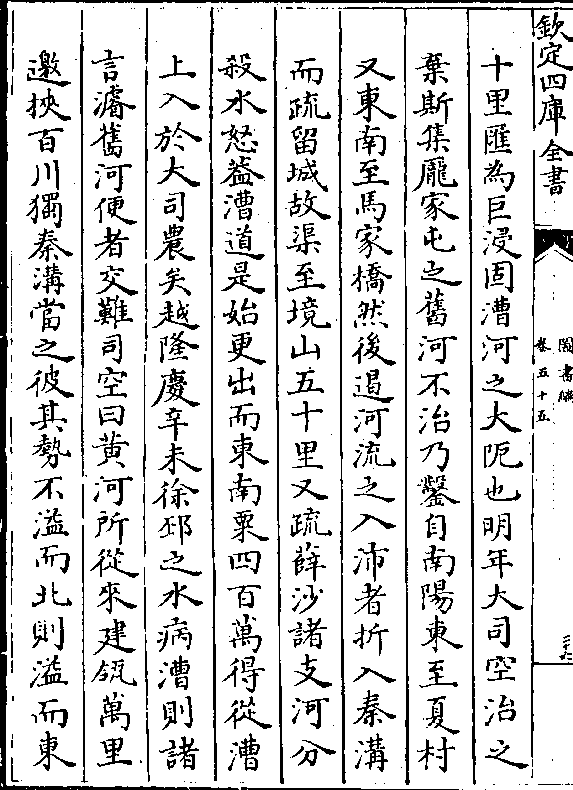 欽定四庫全書
圖書編
卷五十五
三十六
十里匯為巨浸固漕河之大阨也明年大司空治之
棄斯集龎家屯之舊河不治乃鑿自南陽東至夏村
又東南至馬家橋然後遏河流之入沛者折入秦溝
而疏留城故渠至境山五十里又疏薛沙諸支河分
殺水怒葢漕道是始更出而東南粟四百萬得從漕
上入於大司農矣越隆慶辛未徐邳之水病漕則諸
言濬舊河便者交難司空曰黄河所從來建瓴萬里
邀挾百川獨秦溝當之彼其勢不溢而北則溢而東